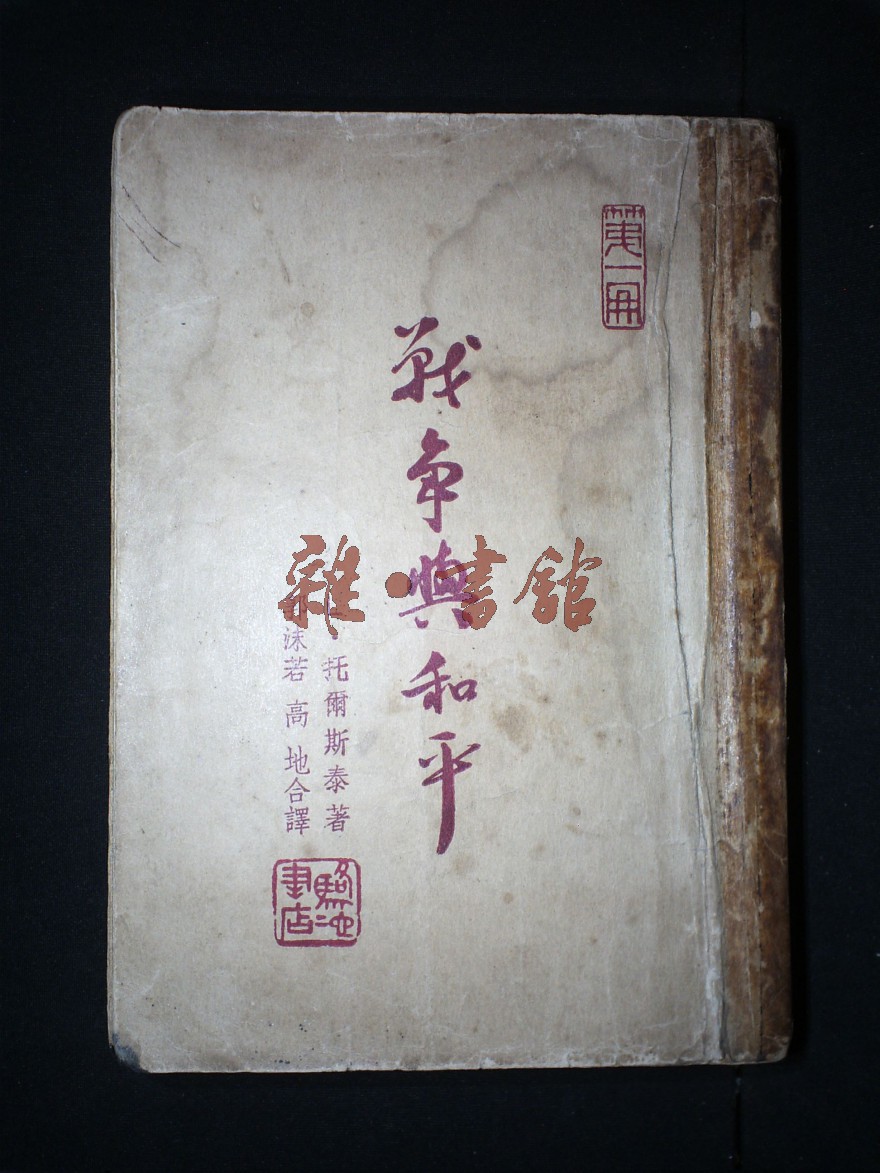 第一冊
戰爭與和平
托爾斯泰著
郭沫若 高地合譯
駱駝書店
雜·書館